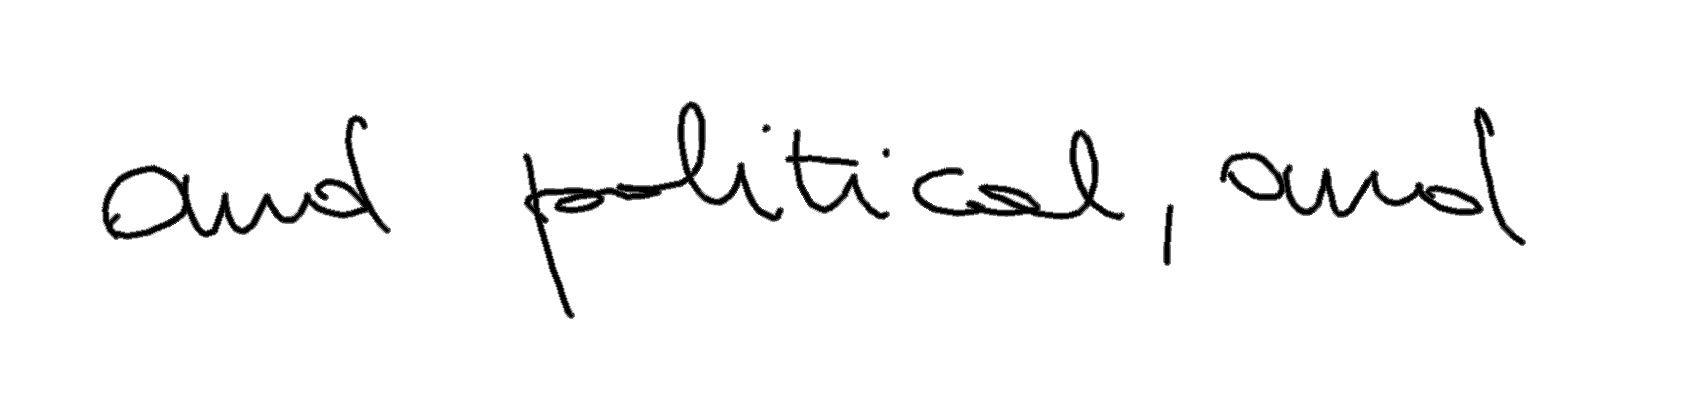 and political, and